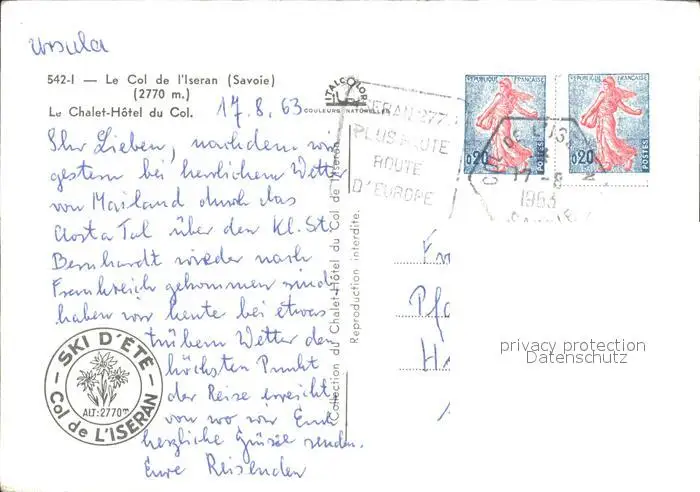 Ursula
542-I — Le Col de l'Iseran (Savoie)
(2770 m.)
Le Chalet-Hôtel du Col.
17.8.63
ITALCOLOR
COULEURS NATURELLES
Ihr Lieben, nachdem wir
gestern bei herrlichem Wetter
von Mailand durch das
Aosta Tal über den Kl. St.
Bernhardt wieder nach
Frankreich gekommen sind
haben wir heute bei etwas
trübem Wetter den
höchsten Punkt
der Reise erreicht
von wo wir Euch
herzliche Grüsse senden.
Eure Reisenden
SKI D'ÉTÉ
ALT: 2770m
Col de L'ISERAN
Collection du Chalet-Hôtel du Col de l'Iseran
Reproduction interdite.
ISERAN 277
PLUS HAUTE
ROUTE
D'EUROPE
REPUBLIQUE FRANÇAISE
0,20
POSTES
REPUBLIQUE FRANÇAISE
0,20
POSTES
COL DE L'ISE
17-8
1963
SAVOIE
privacy protection
Datenschutz